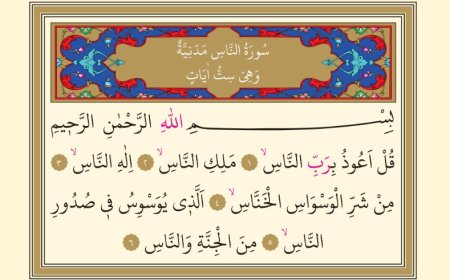 سُورَةُ النَّاسِ مَدَنِيَّةٌ
وَهِىَ سِتُّ اٰيَاتٍ
بِسْمِ اللّٰهِ الرَّحْمٰنِ الرَّحٖيمِ
قُلْ اَعُوذُ بِرَبِّ النَّاسِۙ ﴿١﴾ مَلِكِ النَّاسِۙ ﴿٢﴾ اِلٰهِ النَّاسِۙ ﴿٣﴾
مِنْ شَرِّ الْوَسْوَاسِ الْخَنَّاسِۙ ﴿٤﴾ اَلَّذٖى يُوَسْوِسُ فٖى صُدُورِ
النَّاسِۙ ﴿٥﴾ مِنَ الْجِنَّةِ وَالنَّاسِ ﴿٦﴾